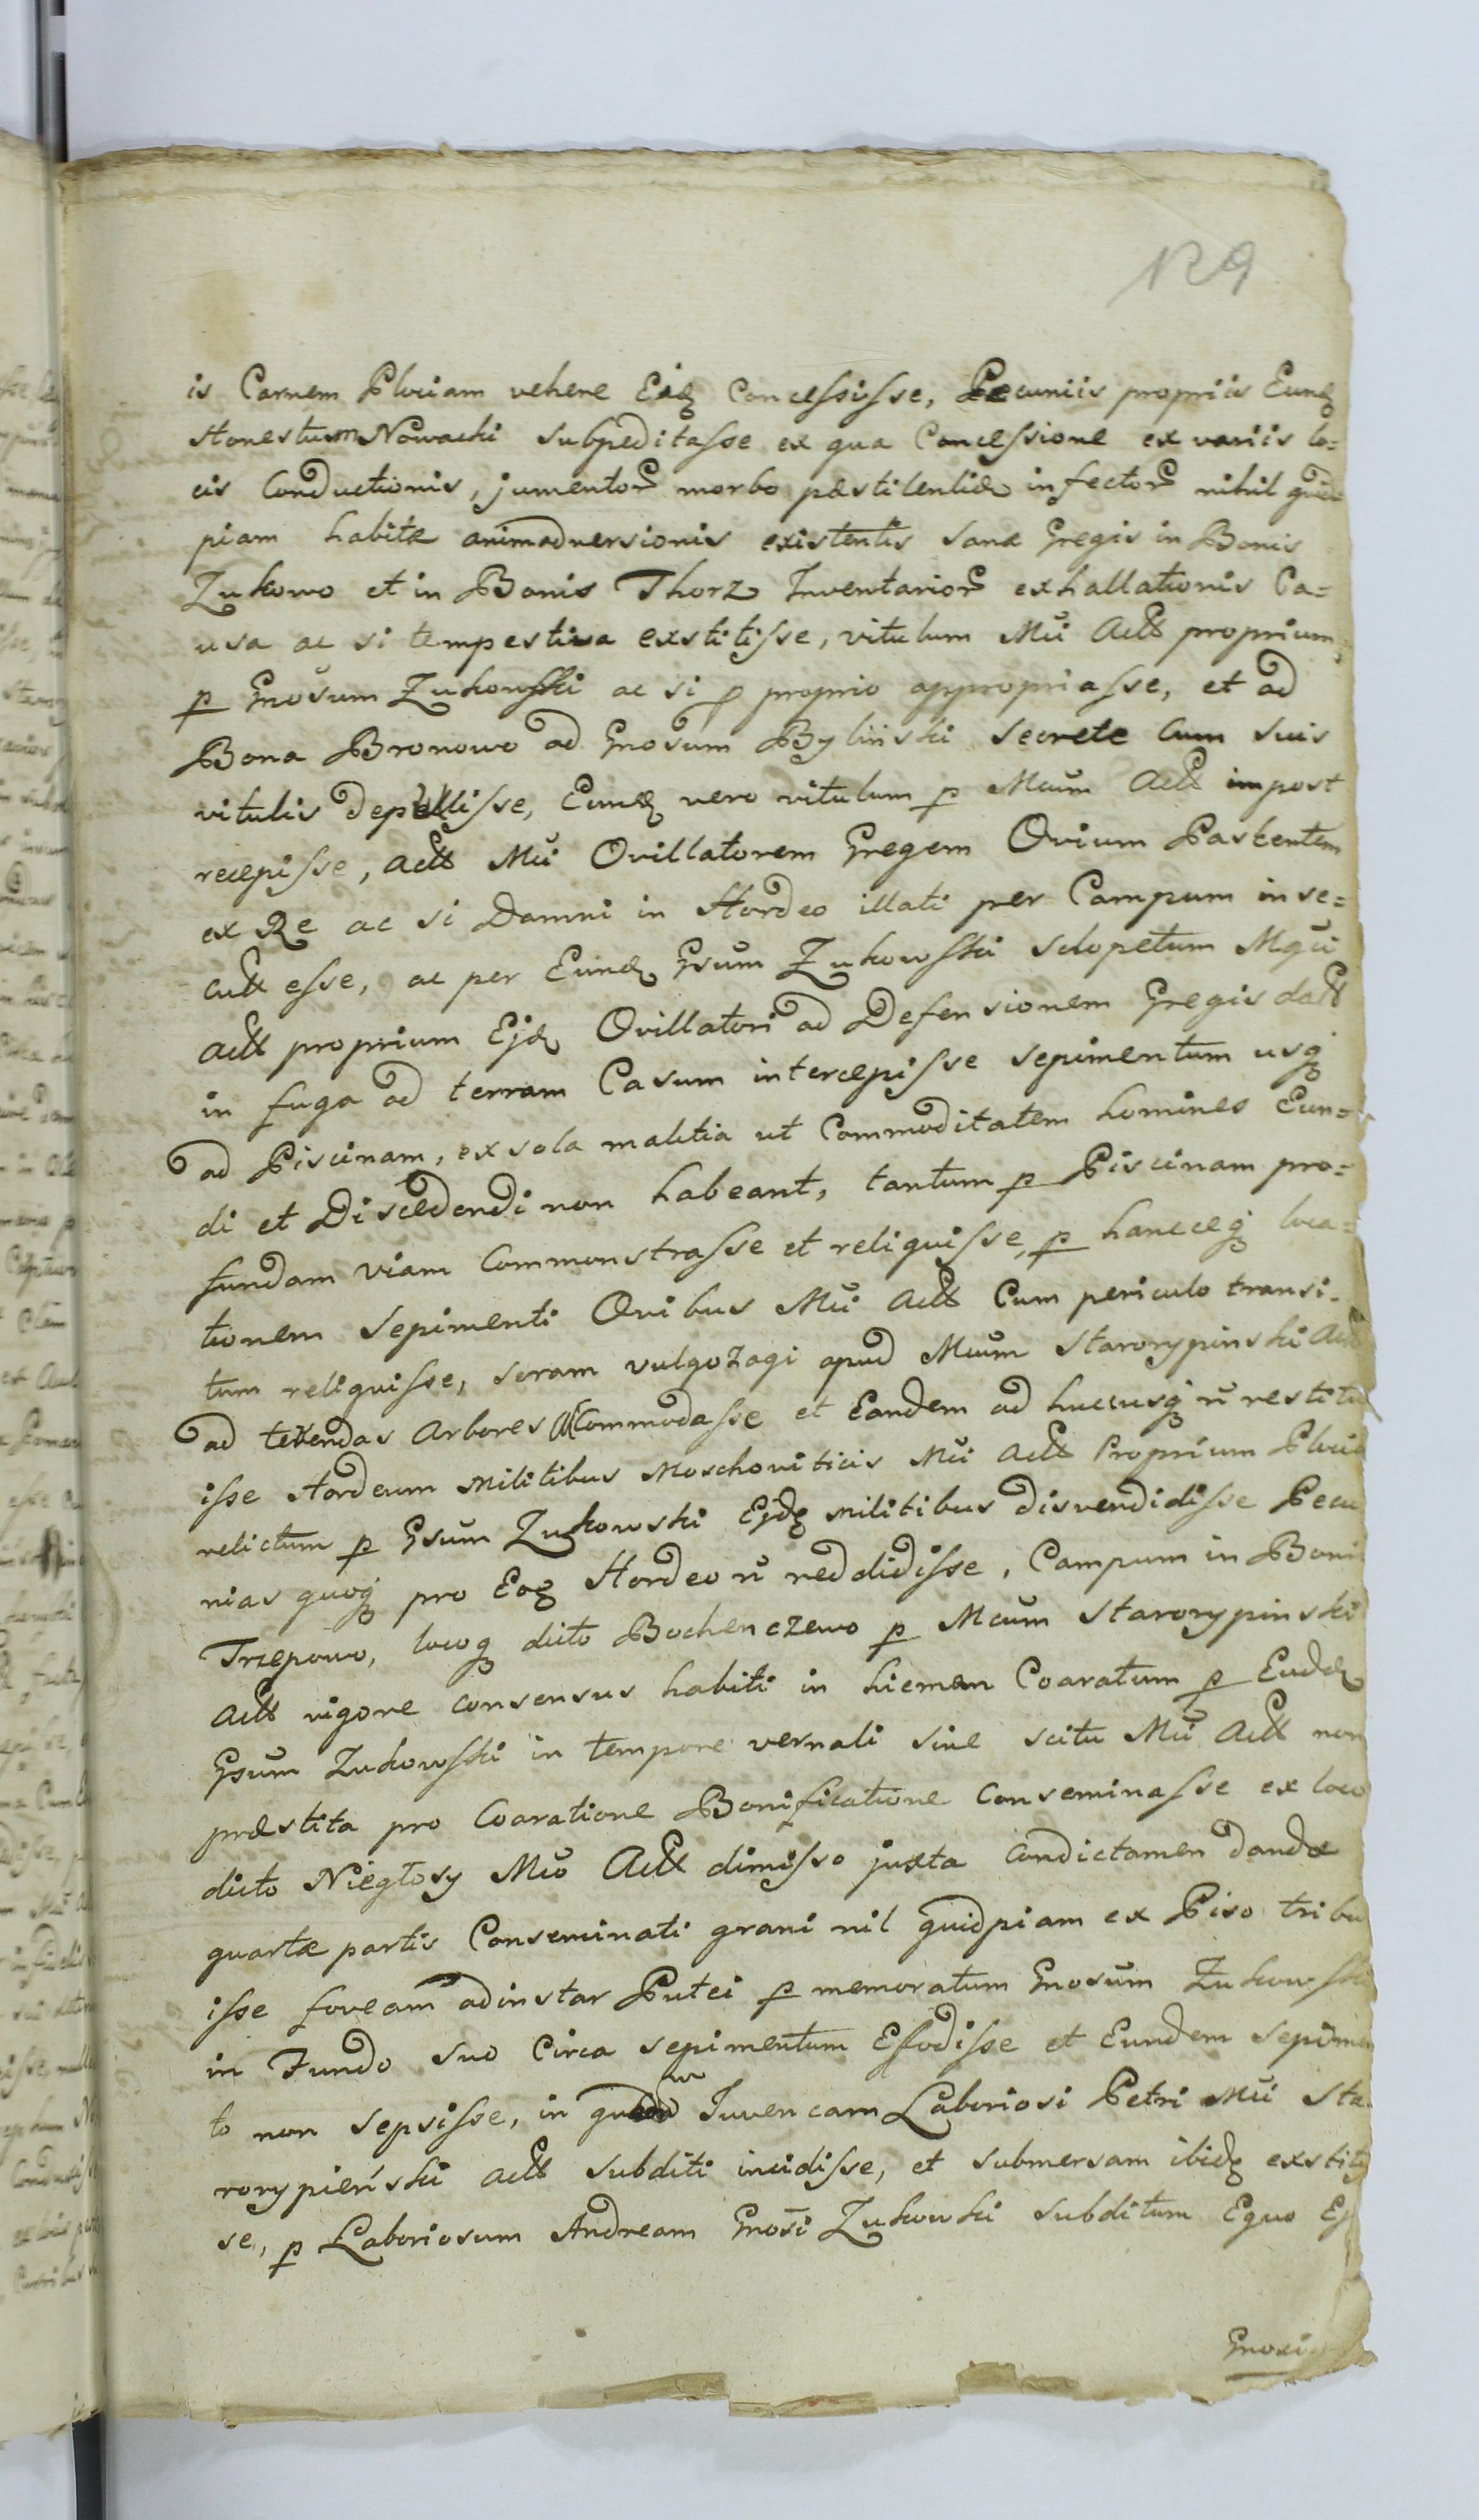 129
is Carnem Plociam vehere Eidq Concessisse, Pecuniis propriis Eundq
Honestum Nowacki subpeditasse ex qua Concessione ex variis lo=
cis Conductionis, jumentor morbo pæstilentiæ infector nihil quid
piam habitæ animadversionis existentis sanæ Gregis in Bonis
Zukowo et in Bonis Thorz Inventarior exhallationis Ca=
usa ac si tempestiva exstitisse, vitulum Mĩi Actt proprium
p Gnosum Zukowski ac si p proprio appropriasse, et ad
Bona Bronowo ad Gnosum Bylinski secrete Cum suis
vitulis depullisse, Eundq vero vitulum p Mcum Actt impost
recepisse, Actt Mĩi Ovillatorem Gregem Ovium Pascentem
ex Re ac si Damni in Hordeo illati per Campum inse=
cutt esse, ac per Eundq Gsum Zukowski sclopetum Mgci
Actt proprium Ejdq Ovillatori ad Defensionem Gregis datt
in fuga ad terram Casum intercepisse sepimentum usq
ad Piscinam, ex sola malitia ut Commoditatem homines Eun=
di et Discedendi non habeant, tantum p Piscinam pro=
fundam viam Commonstrasse et reliquisse, p hancceq loca=
tionem sepimenti Ovibus Mĩi Actt Cum periculo transi=
tum reliquisse, serram vulgo zagi apud Mcum Starorypinski Actt
ad terendas Arbores Accommodasse et Eandem ad hucusq ñ restitu
isse Hordeum militibus Moschoviticis Mĩi Actt Proprium Plocie
relictum p Gsum Zukowski Ejdq militibus disvendidisse Pecu
nias quoq pro Eoq Hordeo ñ reddidisse, Campum in Boni
Trzepowo, locoq dicto Bochenczewo p Mcum Starorypinski
Actt vigore consensus habiti in hiemem Coaratum p Eudq
Gsum Zukowski in tempore vernali sine scitu Mĩi Actt non
præstita pro Coaratione Bonificatione Conseminasse ex loco
dicto Niegłosy Mco Actt dimisso juxta Condictamen dandæ
quartæ partis Conseminati grani nil quidpiam ex Piso tribu
isse foveam adinstar Putei p memoratum Gnosum Zukowski
in Fundo suo Circa sepimentum Efodisse et Eundem sepimen
to non sepsisse, in Juvencam Laboriosi Petri Mĩi Sta
rorypieński Actt subditi incidisse, et submersam ibidq exstitis
se, p Laboriosum Andream Gnosi Zukowski subditum Equo Ej
Gnosi